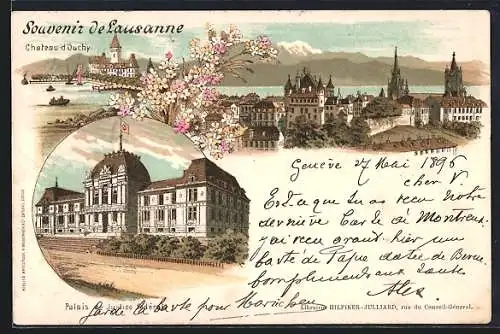 Souvenir de Lausanne
Chateau d'Ouchy
Genève 27 Mai 1896
cher V
Est-ce que tu as reçu notre
dernière Carte de Montreux
j'ai reçu avant-hier une
carte de Papa datée de Berne
compliments aux tantes
Alex
Palais de Justice Fédéral
Librairie HILFIKER-JULLIARD, rue du Conseil-Général.
Garde la carte pour